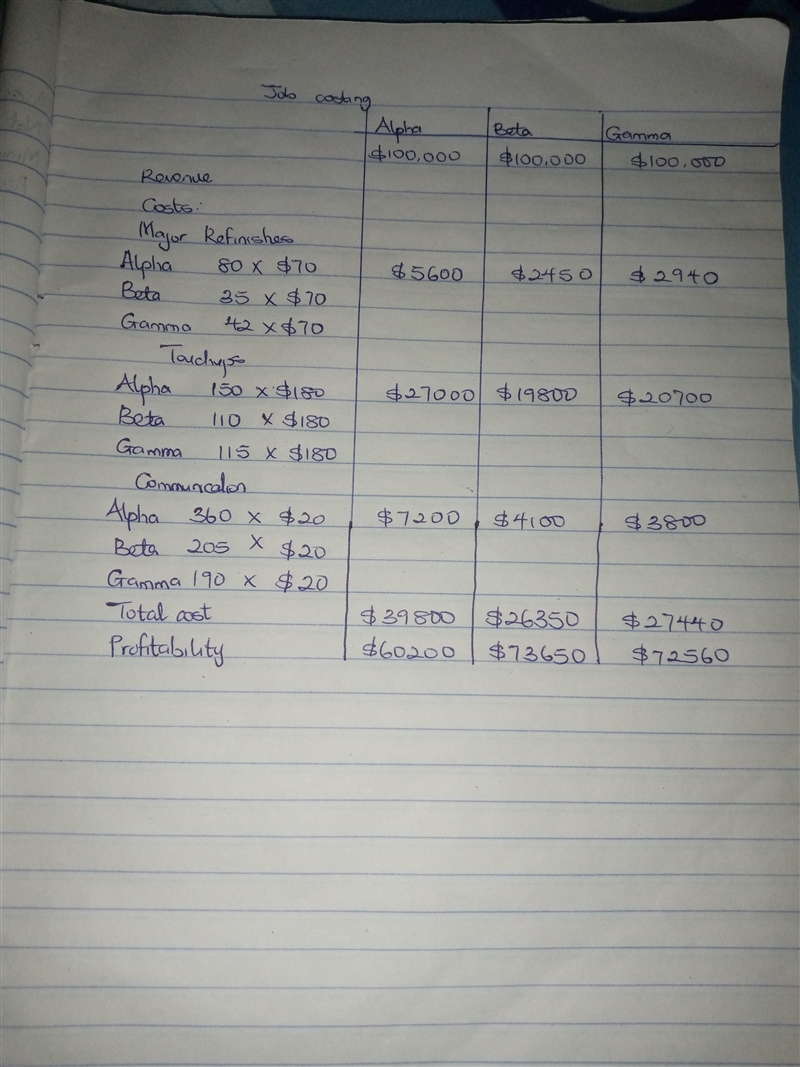 Job costing
Alpha Beta Gamma
$100,000 $100,000 $100,000
Revenue
Costs:
Major Refinishes
Alpha 80 x $70 $5600 $2450 $2940
Beta 35 x $70
Gamma 42 x $70
Touchups
Alpha 150 x $180 $27000 $19800 $20700
Beta 110 x $180
Gamma 115 x $180
Communcation
Alpha 360 x $20 $7200 $4100 $3800
Beta 205 x $20
Gamma 190 x $20
Total cost $39800 $26350 $27440
Profitability $60200 $73650 $72560